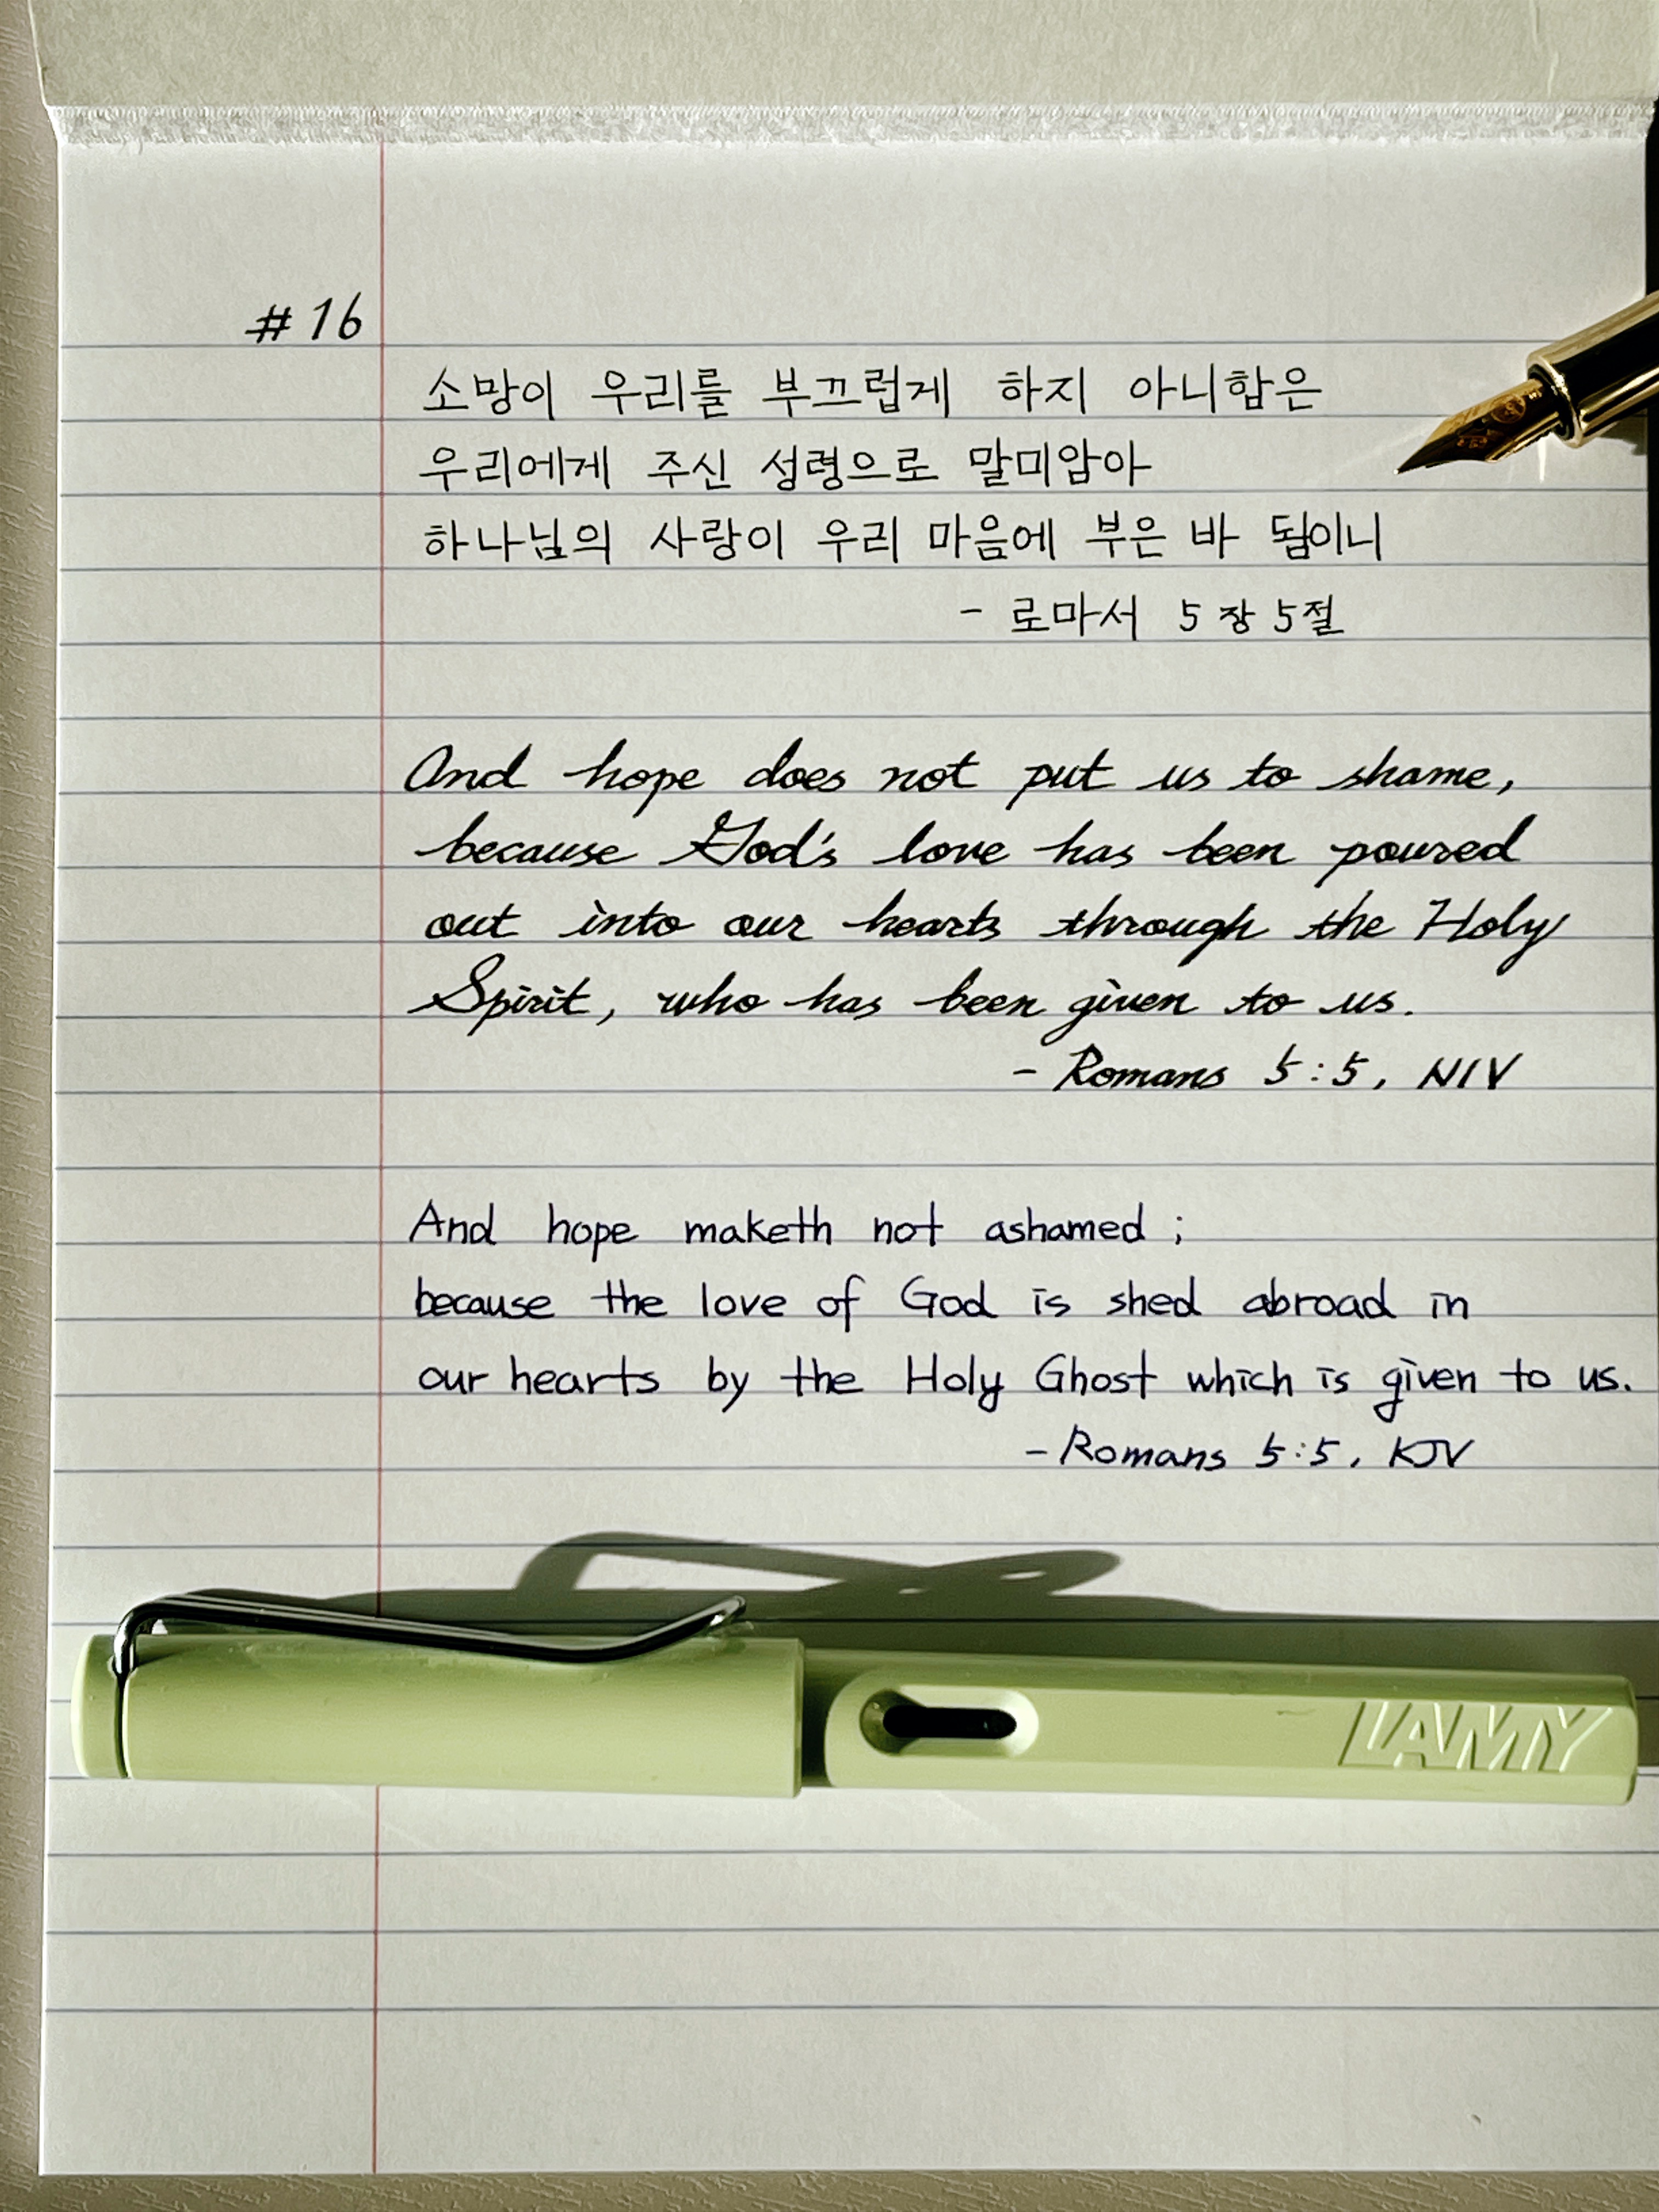 #16
소망이 우리를 부끄럽게 하지 아니함은
우리에게 주신 성령으로 말미암아
하나님의 사랑이 우리 마음에 부은 바 됨이니
- 로마서 5장 5절
And hope does not put us to shame,
because God's love has been poured
out into our hearts through the Holy
Spirit, who has been given to us.
- Romans 5:5, NIV
And hope maketh not ashamed ;
because the love of God is shed abroad in
our hearts by the Holy Ghost which is given to us.
- Romans 5:5, KJV
LAMY